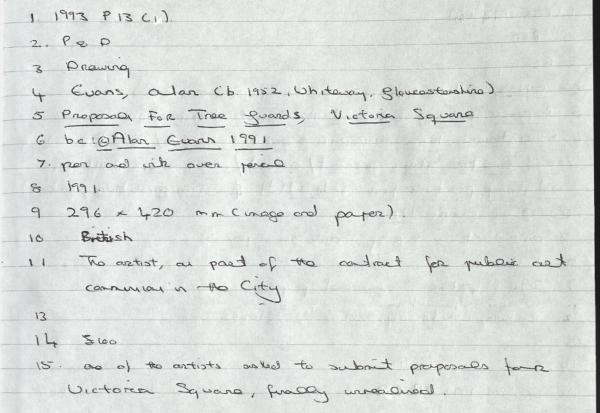 1 1993 P13 (1)
2. P & D
3 Drawing
4 Evans, Alan (b. 1952, Whiteway, Gloucestershire)
5 Proposals For Tree Guards, Victoria Square
6 bc: @Alan Evans 1991
7. pen and ink over pencil
8 1991.
9 296 x 420 mm (image and paper).
10 British
11 The artist, as part of the contract for public art
commission in the City
13
14 £100
15. one of the artists asked to submit proposals for
Victoria Square, finally unrealised.